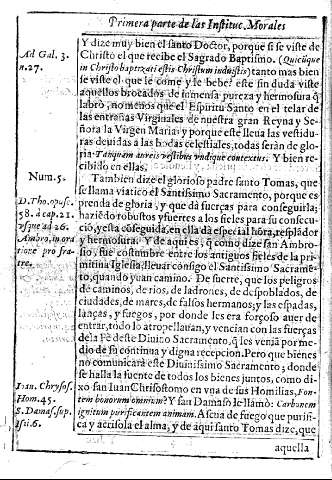 Primera parte de las Instituc. Morales
Y dize muy bien el santo Doctor, porque si se viste de
Christo el que recibe el Sagrado Baptismo. (Quicũque
in Christo baptizati estis Christum induistis) tanto mas bien
se viste el que le come y le bebe? este sin duda viste
aquellos brocados de inmensa pureza y hermosura q̃
labrò, no menos que el Espiritu Santo en el telar de
las entrañas Virginales de nuestra gran Reyna y Se-
ñora la Virgen Maria: y porque este lleua las vestidu-
ras deuidas a las bodas celestiales, todas seràn de glo-
ria. Tanquam aureis vestibus vndique contextus. Y bien re-
cibido en ellas.
Tambien dize el glorioso padre santo Tomas, que
se llama viatico el Santissimo Sacramento, porque es
prenda de gloria, y que dà fuerças para conseguirla;
haziẽdo robustos y fuertes a los fieles para su consecu-
ciõ, y esta cõseguida, en ella dà especial hõra, resplãdor
y hermosura. Y de aqui es, q̃ como dize san Ambro-
sio, fue costumbre entre los antiguos fieles de la pri-
mitiua Iglesia, lleuar consigo el Santissimo Sacramẽ-
to, quando yuan camino. De suerte, que los peligros
de caminos, de rios, de ladrones, de despoblados, de
ciudades, de mares, de falsos hermanos; y las espadas,
lanças, y fuegos, por donde les era forçoso auer de
entrar, todo lo atropellauan, y vencian con las fuerças
de la Fè deste Diuino Sacramento, q̃ les venia por me-
dio de su continua y digna recepcion. Pero que bienes
no comunicarà este Diuinissimo Sacramento; donde
se halla la fuente de todos los bienes juntos, como di-
xo san Iuan Chrisostomo en vna de sus Homilias, Fon-
tem bonorum omnium? Y san Damaso le llamò: Carbonem
ignitum purificantem animam. Ascua de fuego que purifi-
ca y acrisola el alma; y de aqui santo Tomas dize, que
aquella
Ad Gal. 3.
n. 27.
Num. 5.
D. Tho. opusc.
58. à cap. 21.
vsque ad 26.
Ambro. in ora
tione pro fra-
tre.
Ioan. Chrysos.
Hom. 45.
S. Damas. sup.
Isai. 6.